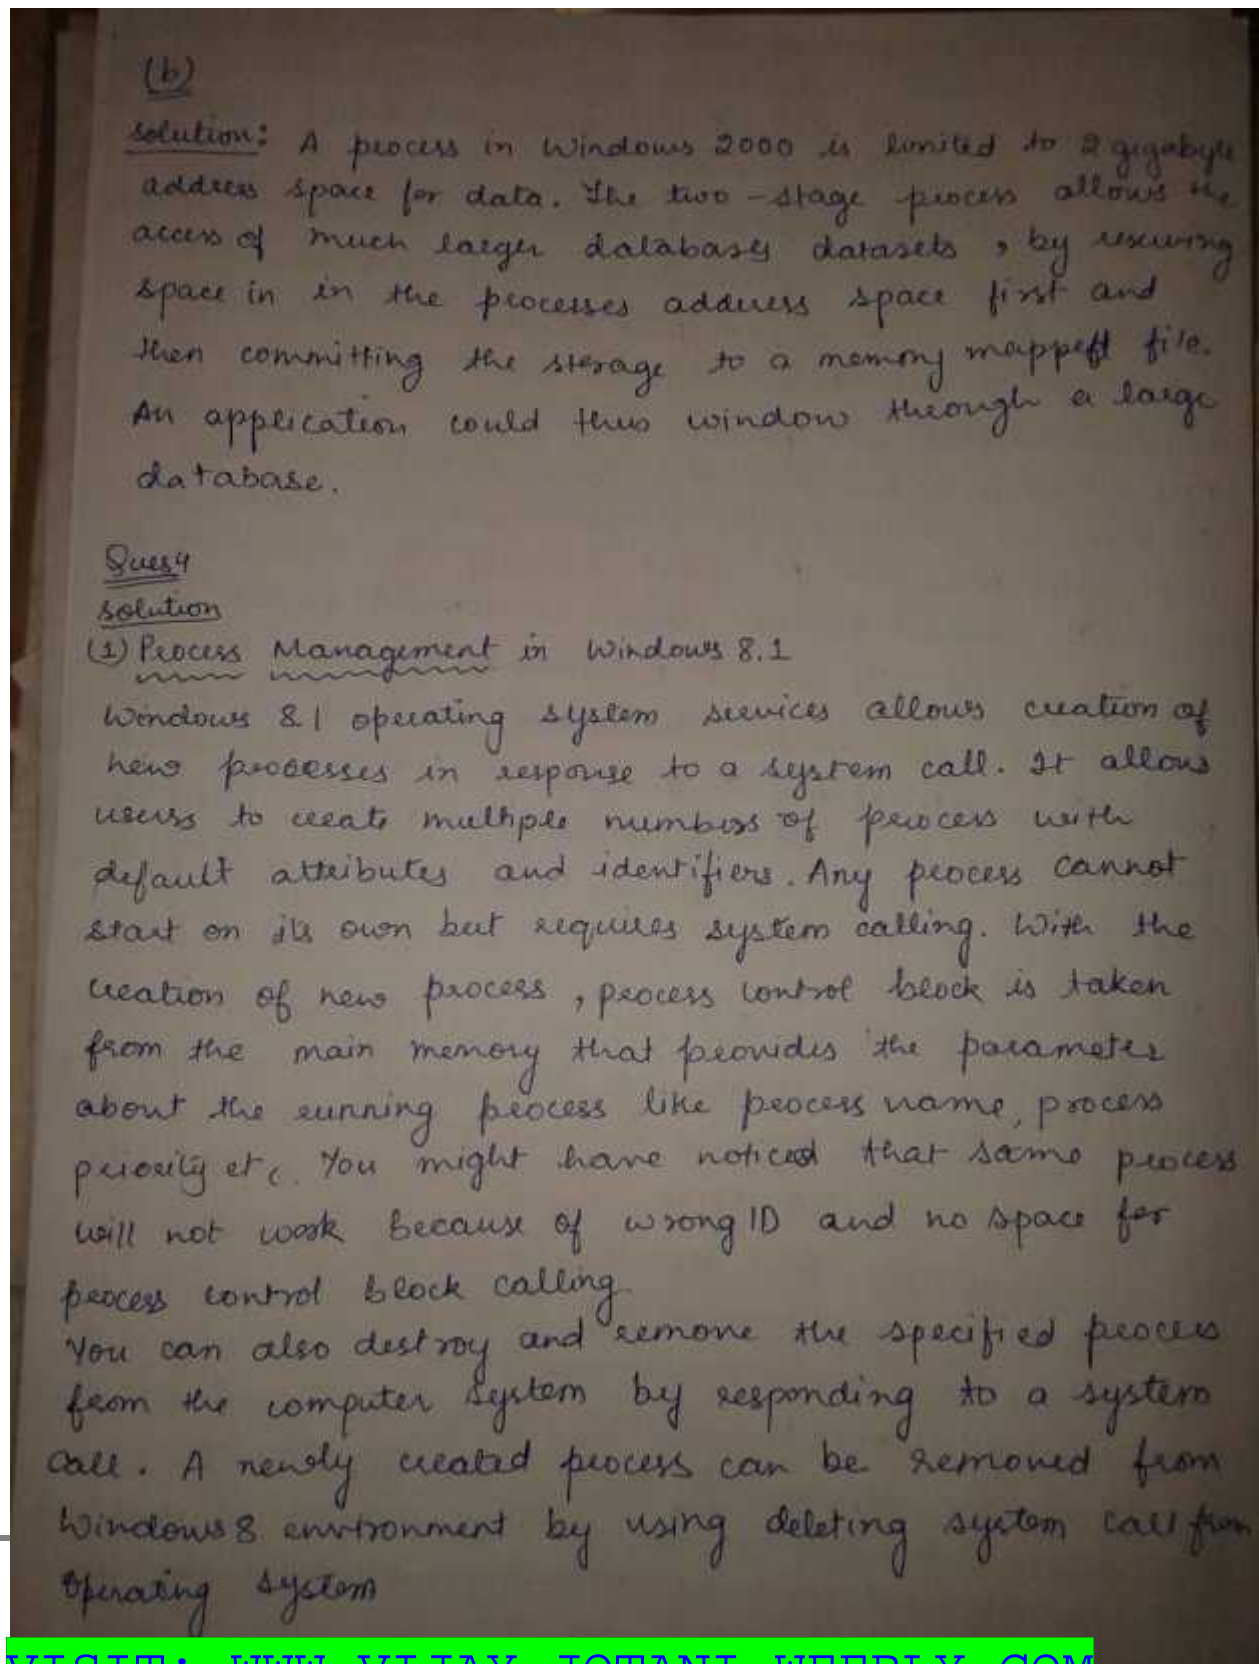 (b)
Solution: A process in Windows 2000 is limited to 2 gigabyte
address space for data. The two-stage process allows the
access of much larger databases datasets, by reserving
space in in the processes address space first and
then committing the storage to a memory mapped file.
An application could thus window through a large
database.
Ques4
solution
(1) Process Management in Windows 8.1
Windows 8.1 operating system services allows creation of
new processes in response to a system call. It allows
users to create multiple numbers of process with
default attributes and identifiers. Any process cannot
start on its own but requires system calling. With the
creation of new process, process control block is taken
from the main memory that provides the parameter
about the running process like process name, process
priority etc. You might have noticed that same process
will not work because of wrong ID and no space for
process control block calling.
You can also destroy and remove the specified process
from the computer system by responding to a system
call. A newly created process can be removed from
Windows 8 environment by using deleting system call from
operating system
VISIT: WWW.VIJAY-JOTANI.WEEBLY.COM